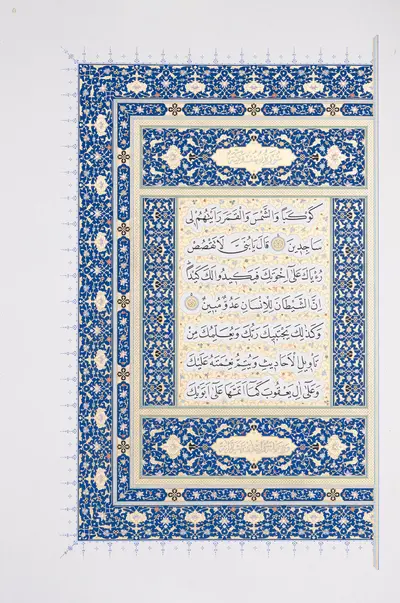 كَوْكَبًا وَالشَّمْسَ وَالْقَمَرَ رَأَيْتُهُمْ لِي
سَاجِدِينَ قَالَ يَا بُنَيَّ لَا تَقْصُصْ
رُؤْيَاكَ عَلَى إِخْوَتِكَ فَيَكِيدُوا لَكَ كَيْدًا
إِنَّ الشَّيْطَانَ لِلْإِنْسَانِ عَدُوٌّ مُبِينٌ
وَكَذَلِكَ يَجْتَبِيكَ رَبُّكَ وَيُعَلِّمُكَ مِنْ
تَأْوِيلِ الْأَحَادِيثِ وَيُتِمُّ نِعْمَتَهُ عَلَيْكَ
وَعَلَى آلِ يَعْقُوبَ كَمَا أَتَمَّهَا عَلَى أَبَوَيْكَ